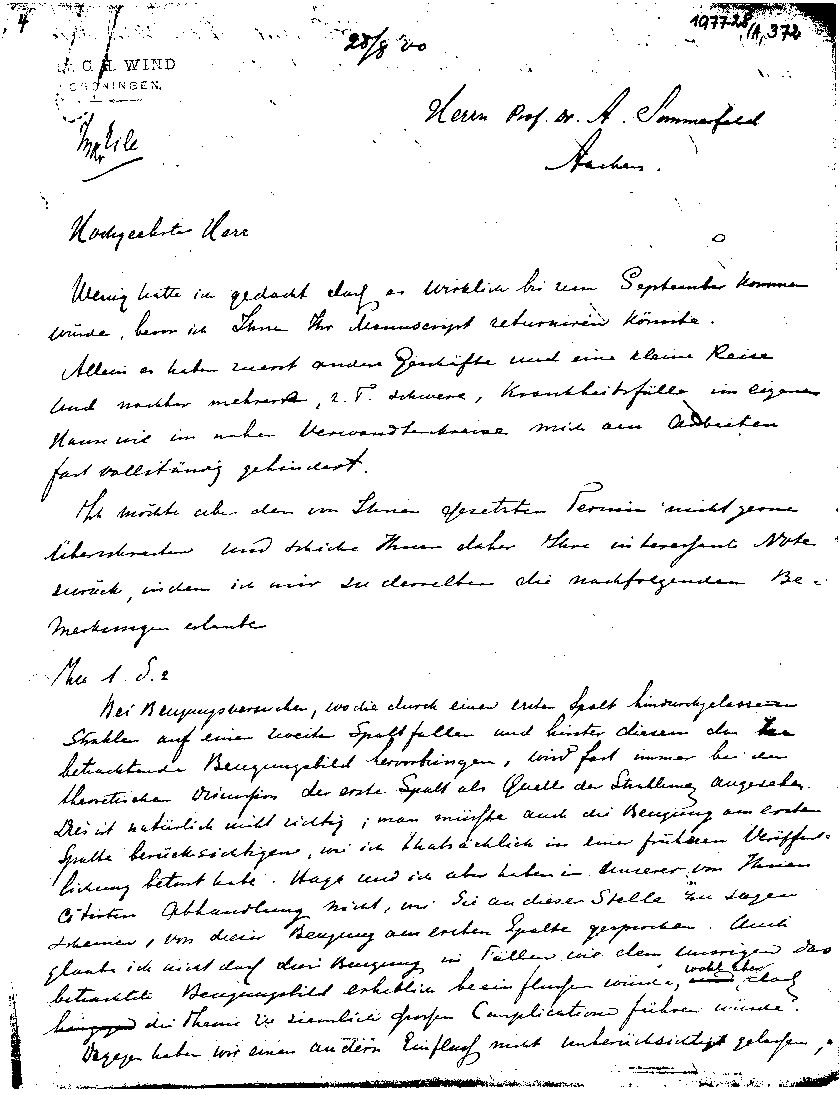 4
28/8 00
1977-28/A,372
C. H. WIND
GRONINGEN.
In Eile
Herrn Prof. Dr. A. Sommerfeld
Aachen.
Hochgeehrter Herr
Wenig hatte ich gedacht dass es wirklich bis zum September kommen
würde, bevor ich Ihnen Ihr Manuscript returniren könnte.
Allein es haben zuerst andere Geschäfte und eine kleine Reise
und nachher mehrere, z. T. schwere, Krankheitsfälle im eigenen
Hause wie im nahen Verwandtenkreise mich am Arbeiten
fast vollständig gehindert.
Ich möchte aber den von Ihnen gesetzten Termin nicht gerne
überschreiten und schicke Ihnen daher Ihre interessante Note
zurück, indem ich mir zu derselben die nachfolgenden Be-
merkungen erlaube
Zu 1. S. 2
Bei Beugungsversuchen, wo die durch einen ersten Spalt hindurchgelassenen
Strahlen auf einen zweiten Spalt fallen und hinter diesem das zu
betrachtende Beugungsbild hervorbringen, wird fast immer bei den
theoretischen Discussion der erste Spalt als Quelle der Strahlung angesehen.
Dies ist natürlich nicht richtig; man müsste auch die Beugung am ersten
Spalte berücksichtigen, wie ich thatsächlich in einer früheren Veröffent-
lichung betont habe. Haga und ich aber haben in unserer von Ihnen
citirten Abhandlung nicht, wie Sie an dieser Stelle zu sagen
scheinen, von dieser Beugung am ersten Spalte gesprochen. Auch
glaube ich nicht dass diese Beugung in Fällen wie dem unsrigen das
betrachtete Beugungsbild erheblich beeinflussen würde, wohl aber dass
die Theorie zu ziemlich grossen Complicationen führen würde.
Dagegen haben wir einen andern Einfluss nicht unberücksichtigt gelassen,